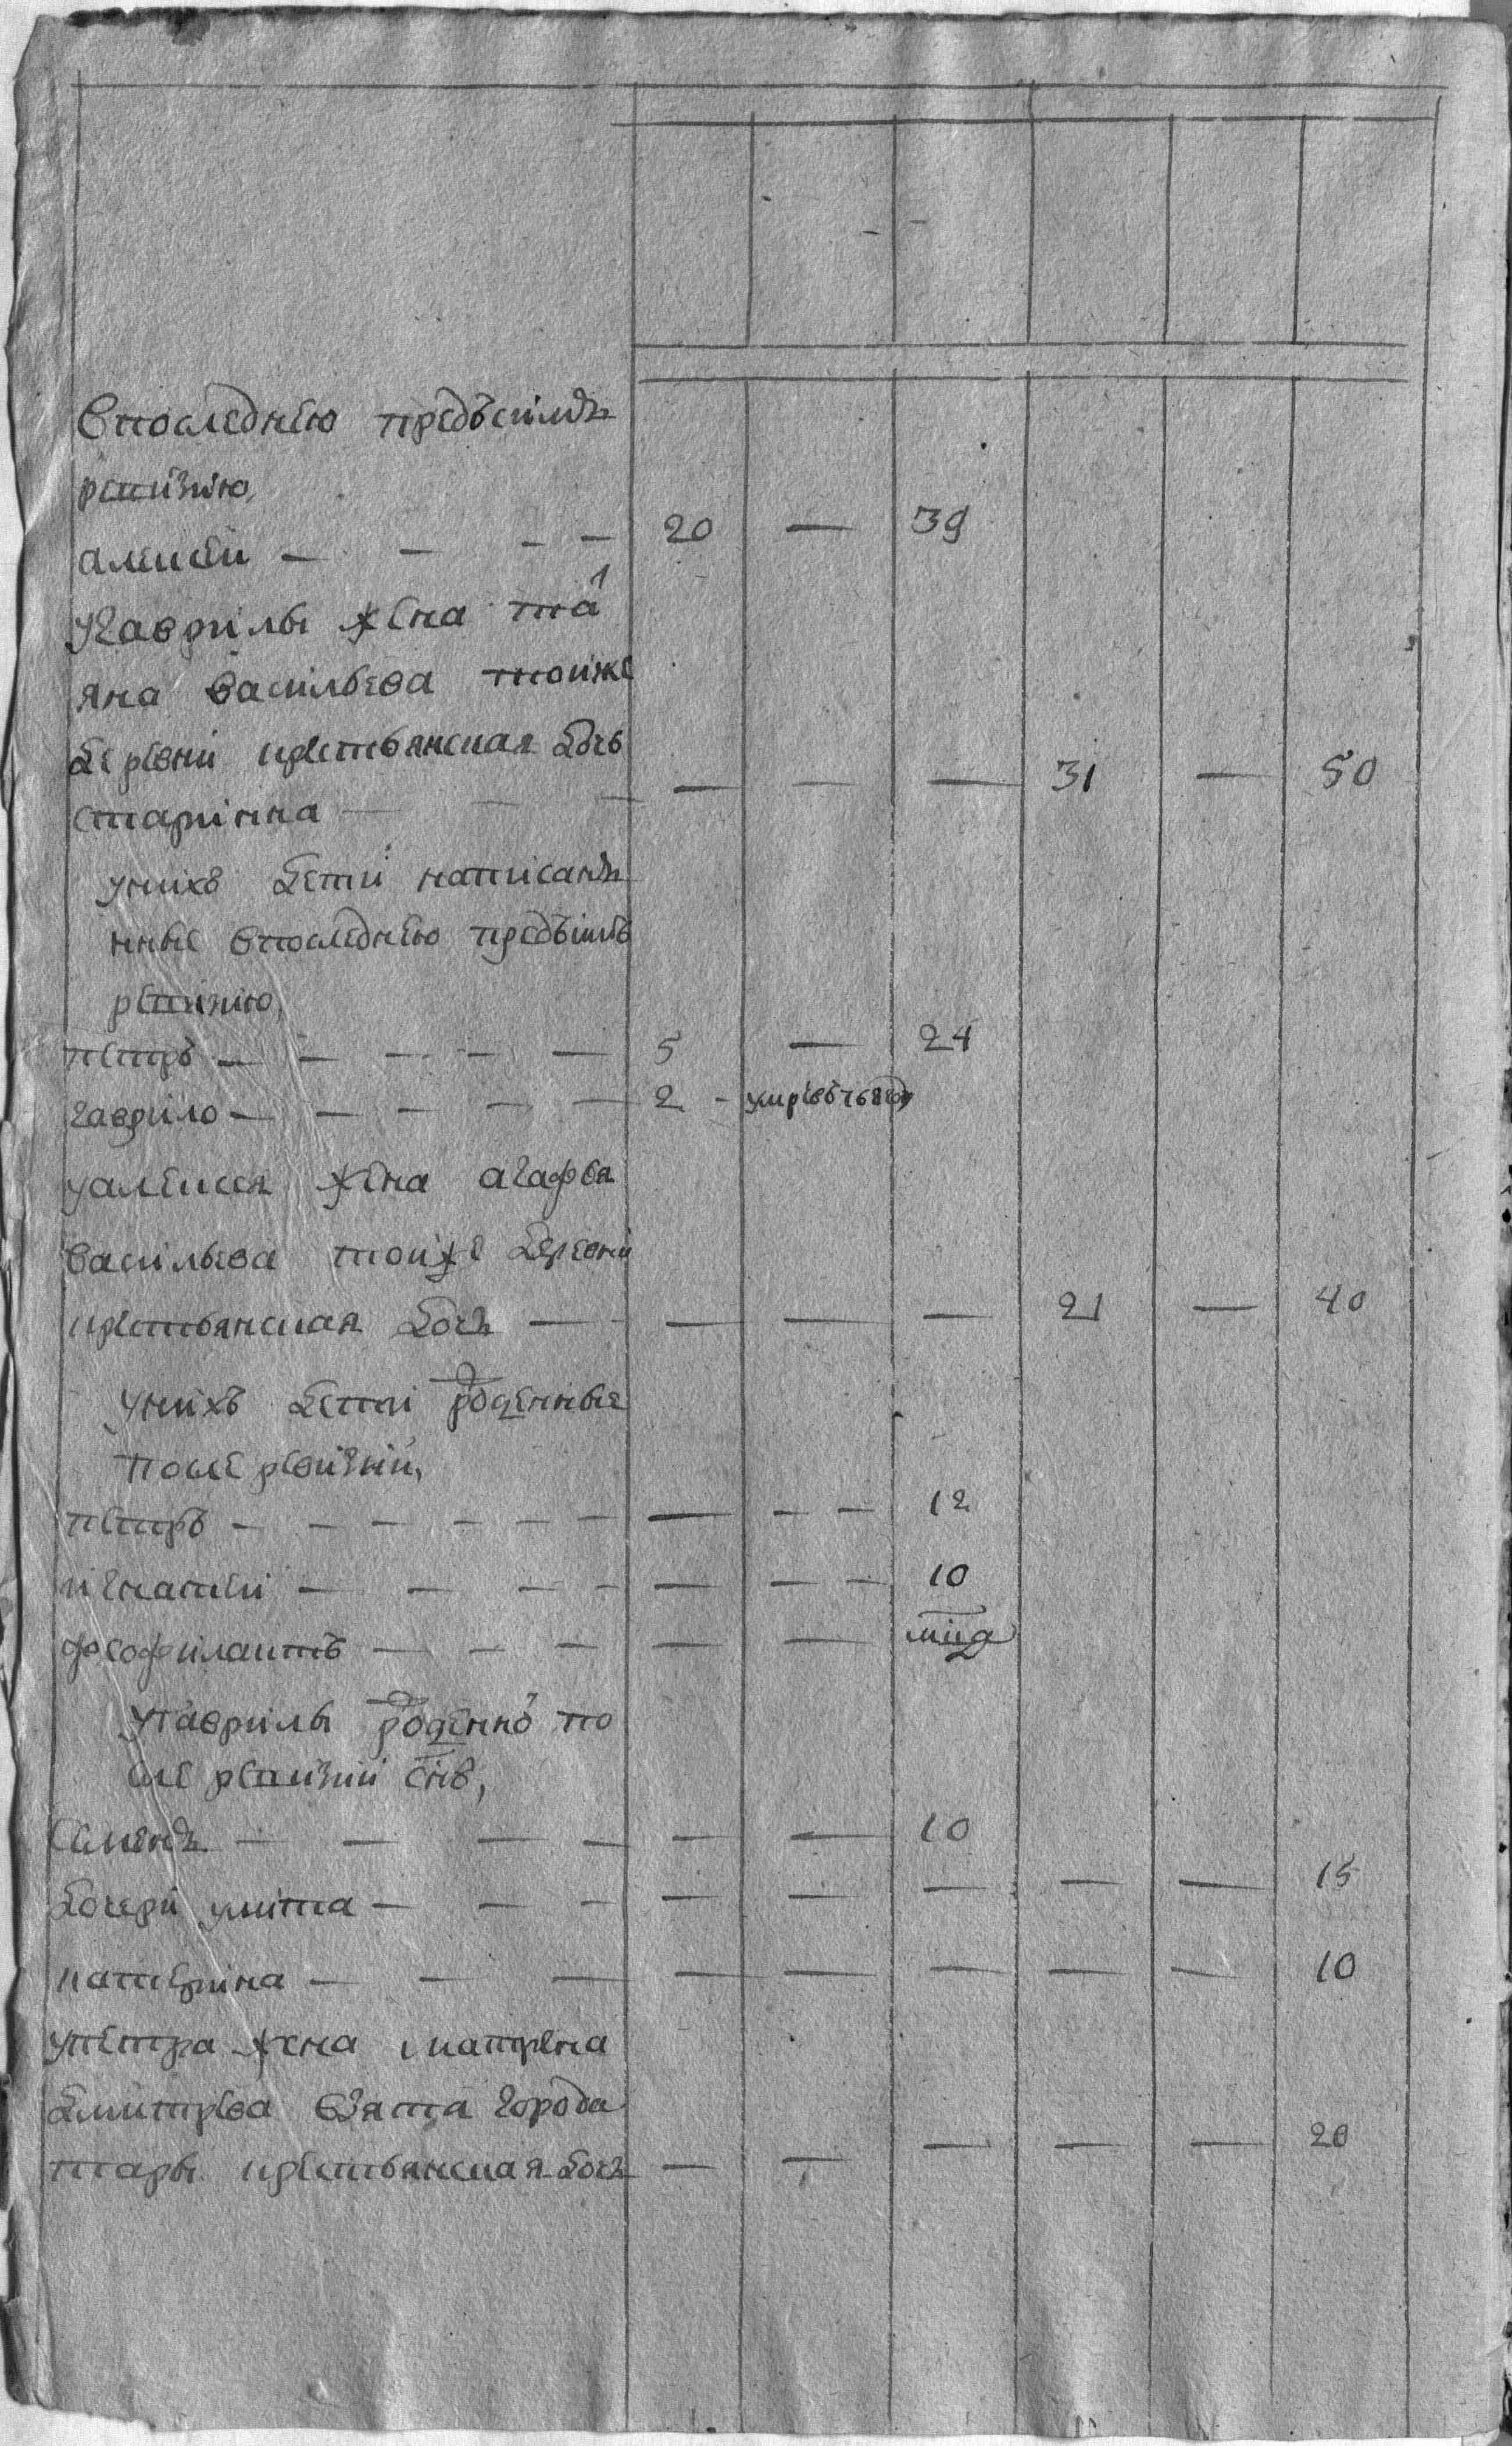 впоследнею предъсимъ
ревизию,
алексеи — — — — 20 — 39
угаврилы жена татья
яна васильева тойже
деревни крестьянская дочь
старинна — — — — — — 31 — 50
унихъ дети написанъ
нные впоследнею предъсимъ
ревизию,
петръ — — — — — 5 — 24
гаврило — — — — — 2 - умре въ 768 году
уалексея жена агафья
васильева тойже деревни
крестьянская дочъ — — — — 21 — 40
унихъ дети рожденные
после ревизии,
петръ — — — — — — — — — 12
игнатеи — — — — — — — 10
феофилактъ — — — — — мцъ
угаврилы рожденной по
сле ревизии снъ,
семенъ — — — — — — 10
дочери улита — — — — — — — — 15
катерина — — — — — — — — 10
упетра жена матрена
дмитрева взята города
тары крестьянская дочъ — — — — — 20